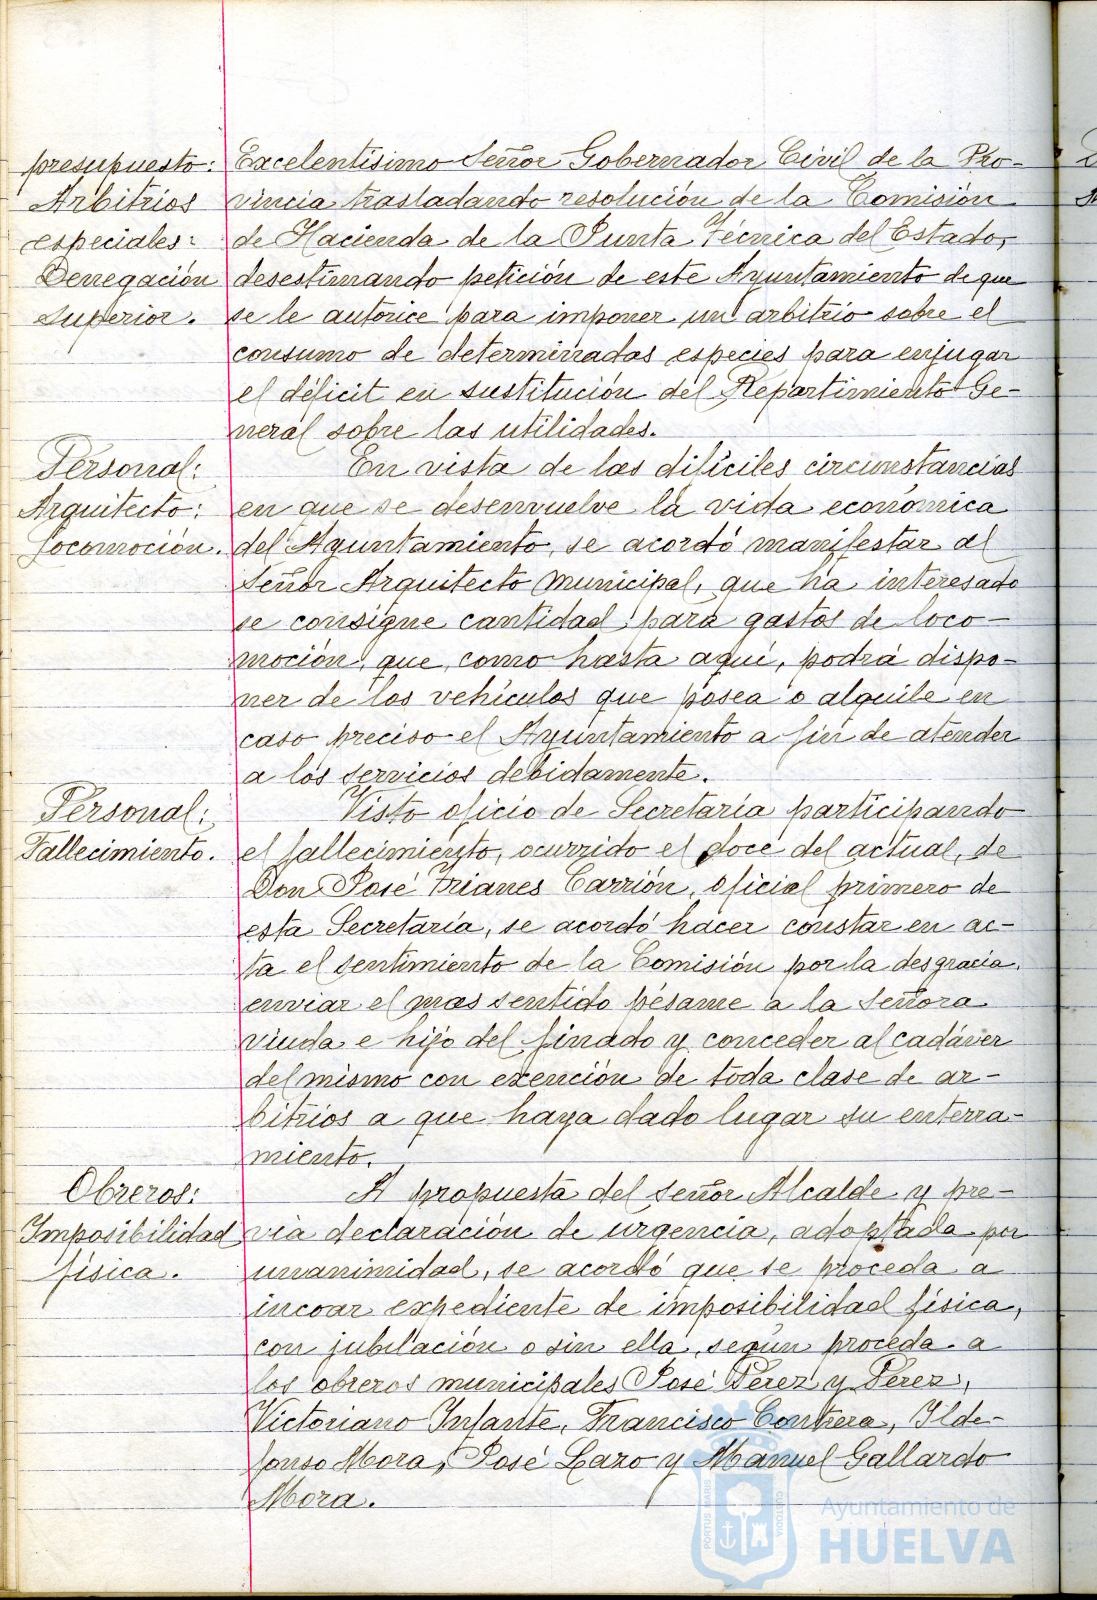 presupuesto:
Arbitrios
especiales:
Denegación
superior.
Excelentísimo Señor Gobernador Civil de la Pro-
vincia trasladando resolución de la Comisión
de Hacienda de la Junta Técnica del Estado,
desestimando petición de este Ayuntamiento de que
se le autorice para imponer un arbitrio sobre el
consumo de determinadas especies para enjugar
el déficit en sustitución del Repartimiento Ge-
neral sobre las utilidades.
Personal:
Arquitecto:
Locomoción.
En vista de las difíciles circunstancias
en que se desenvuelve la vida económica
del Ayuntamiento, se acordó manifestar al
Señor Arquitecto municipal, que ha interesado
se consigne cantidad para gastos de loco-
moción, que, como hasta aquí, podrá dispo-
ner de los vehículos que posea o alquile en
caso preciso el Ayuntamiento a fin de atender
a los servicios debidamente.
Personal:
Fallecimiento.
Visto oficio de Secretaría participando
el fallecimiento, ocurrido el doce del actual, de
Don José Trianes Carrión, oficial primero de
esta Secretaría, se acordó hacer constar en ac-
ta el sentimiento de la Comisión por la desgracia,
enviar el mas sentido pésame a la Señora
viuda e hijo del finado y conceder al cadáver
del mismo con exención de toda clase de ar-
bitrios a que haya dado lugar su enterra-
miento.
Obreros:
Imposibilidad
física.
A propuesta del señor Alcalde y pre-
via declaración de urgencia, adoptada por
unanimidad, se acordó que se proceda a
incoar expediente de imposibilidad física,
con jubilación o sin ella, según proceda a
los obreros municipales José Pérez y Pérez,
Victoriano Infante, Francisco Contrera, Ilde-
fonso Mora, José Lazo y Manuel Gallardo
Mora.
PORTUS MARIS
CUSTODIA
Ayuntamiento de
HUELVA